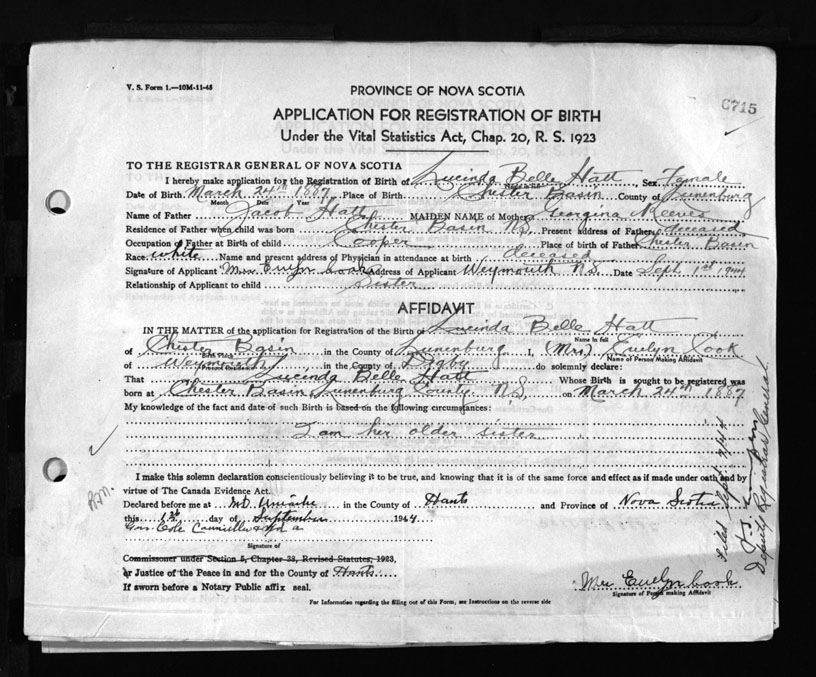 V. S. Form 1.—10M-11-43
PROVINCE OF NOVA SCOTIA
C715
APPLICATION FOR REGISTRATION OF BIRTH
Under the Vital Statistics Act, Chap. 20, R. S. 1923
TO THE REGISTRAR GENERAL OF NOVA SCOTIA
I hereby make application for the Registration of Birth of Lucinda Belle Hatt, Sex Female
Date of Birth March 24th 1887 Place of Birth Chester Basin County of Lunenburg
Month Date Year
Name of Father Jacob Hatt MAIDEN NAME of Mother Georgina Reeves
Residence of Father when child was born Chester Basin N.S. Present address of Father deceased
Occupation of Father at Birth of child Cooper Place of birth of Father Chester Basin
Race white Name and present address of Physician in attendance at birth deceased
Signature of Applicant Mrs Evelyn Cook Address of Applicant Weymouth N.S. Date Sept 1st 1944
Relationship of Applicant to child Sister
AFFIDAVIT
IN THE MATTER of the application for Registration of the Birth of Lucinda Belle Hatt
Name in full
of Chester Basin in the County of Lunenburg I, (Mrs) Evelyn Cook
Name of Person Making Affidavit
of Weymouth in the County of Digby do solemnly declare:
(Present Residence)
That Lucinda Belle Hatt Whose Birth is sought to be registered was
born at Chester Basin, Lunenburg County, N.S. on March 24th 1887
My knowledge of the fact and date of such Birth is based on the following circumstances:
I am her older sister
I make this solemn declaration conscientiously believing it to be true, and knowing that it is of the same force and effect as if made under oath and by
virtue of The Canada Evidence Act.
Declared before me at Mt Uniacke in the County of Hants and Province of Nova Scotia
this 1st day of September 1944
Cole Councillor and a
Signature of
Commissioner under Section 5, Chapter 38, Revised Statutes, 1923,
or Justice of the Peace in and for the County of Hants
If sworn before a Notary Public affix seal.
Mrs Evelyn Cook
Signature of Person making Affidavit
For Information regarding the filling out of this Form, see Instructions on the reverse side
Filed Sept. 7/44
Deputy Registrar General